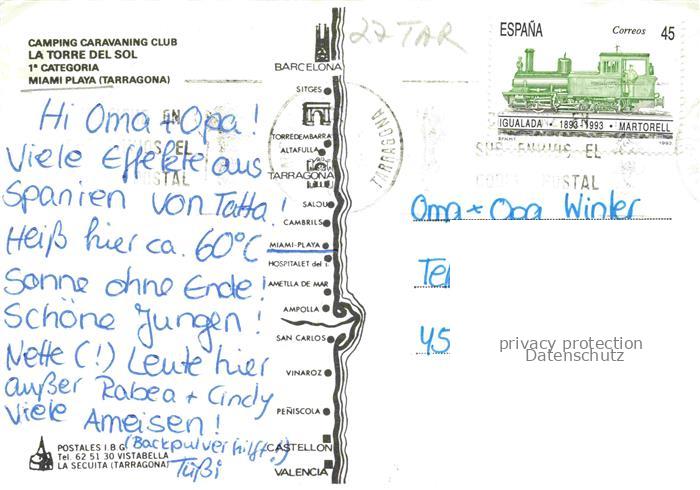 CAMPING CARAVANING CLUB
LA TORRE DEL SOL
1ª CATEGORIA
MIAMI PLAYA (TARRAGONA)
Hi Oma + Opa!
Viele Effekte aus
Spanien von Tatta!
Heiß hier ca. 60°C
Sonne ohne Ende!
Schöne Jungen!
Nette (!) Leute hier
außer Rabea + Cindy
Viele Ameisen!
(Backpulver hilft!)
Tüßi
POSTALES I.B.G.
Tel. 62 51 30 VISTABELLA
LA SECUITA (TARRAGONA)
BARCELONA
SITGES
TORREDEMBARRA
ALTAFULLA
TARRAGONA
SALOU
CAMBRILS
MIAMI-PLAYA
HOSPITALET del I.
AMETLLA DE MAR
AMPOLLA
SAN CARLOS
VINAROZ
PEÑISCOLA
CASTELLON
VALENCIA
27 TAR
TARRAGONA
ESPAÑA Correos 45
IGUALADA · 1893-1993 · MARTORELL
1993
EN
EL
POSTAL
SUS ENVIOS EL
POSTAL
Oma + Opa Winter
Tel
45
privacy protection
Datenschutz